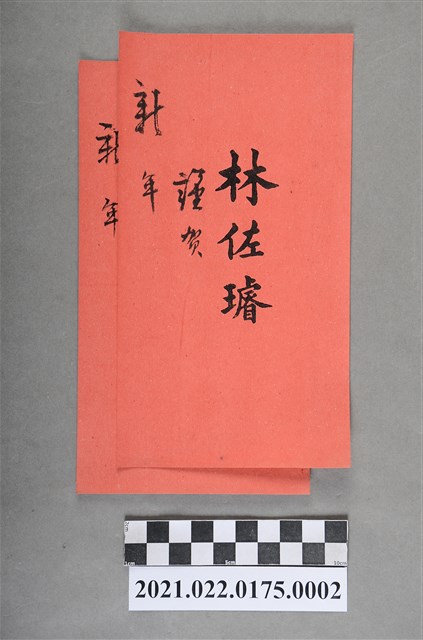 林佐璿
謹賀
新年
新年
2021.022.0175.0002
1cm 5cm 10cm